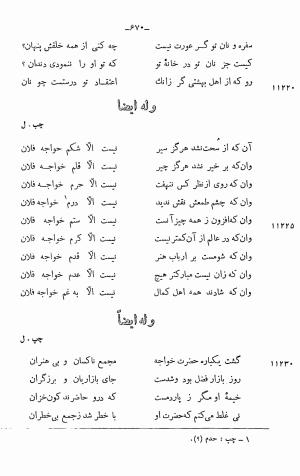 -۶۷۰-
سفره و نان تو گر عورت نیست چه کنی از همه خلقش پنهان؟
کیست جز نان تو در خانهٔ تو که تو او را ننمودی دندان ؟
رو که از اهل بهشتی گر زانك اعتقاد تو درستست چو نان ۱۱۲۲۰
وله ایضاً
چپ . ل
آن که از سُحت نشد هرگز سیر نیست الّا شکم خواجه فلان
وان که بر خیر نشد هرگز چیر نیست الّا قلم خواجه فلان
وان که روی از نظر کس ننهفت نیست الّا حرم خواجه فلان
وان که طمعش نقش ندید نیست الّا درم۱ خواجه فلان
وان که افزون ز همه چیز آنست نیست الّا ستم خواجه فلان ۱۱۲۲۵
وان که در عالم از آن کمتر نیست نیست الّا کرم خواجه فلان
وان که شومست بر ارباب هنر نیست الّا قدم خواجه فلان
وان که زان نیست مبارکتر هیچ نیست الّا عدم خواجه فلان
وان که شادند همه اهل کمال نیست الّا به غم خواجه فلان
وله ایضاً
چپ . ل
گشت یکباره حضرت خواجه مجمع ناکسان و بی هنران ۱۱۲۳۰
روز بازار فضل بود و شدست جای بازاریان و برزگران
خیمهٔ او مگر ز پاردمست که درو حاضرند کون‌خران
نی غلط می‌کنم که حضرت او با خطر شد ز جمع بی‌خطران
۱ – چپ : حدم (؟).